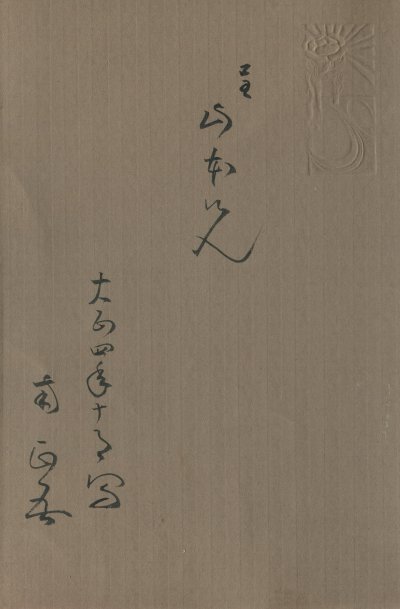 呈
山本兄
大正四年十月写
南正吾